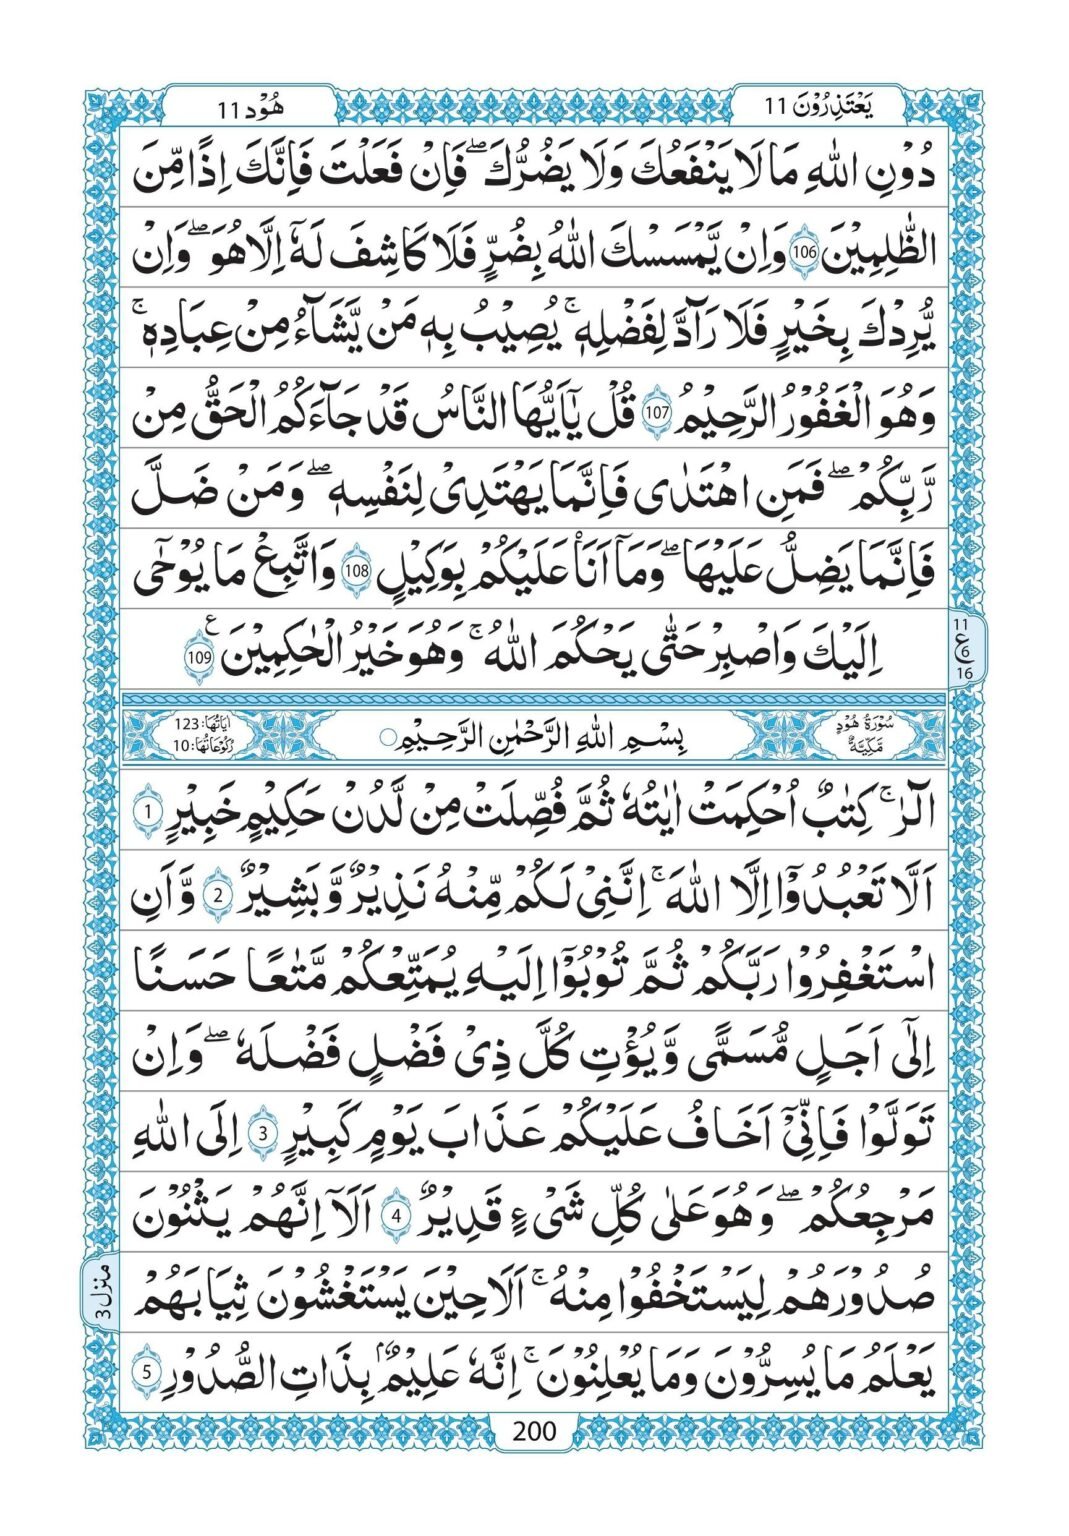 يَعْتَذِرُوْنَ 11
هُوْد 11
دُوْنِ اللّٰهِ مَا لَا يَنْفَعُكَ وَلَا يَضُرُّكَ ۖ فَاِنْ فَعَلْتَ فَاِنَّكَ اِذًا مِّنَ
الظّٰلِمِيْنَ 106 وَاِنْ يَّمْسَسْكَ اللّٰهُ بِضُرٍّ فَلَا كَاشِفَ لَهٗٓ اِلَّا هُوَ ۖ وَاِنْ
يُّرِدْكَ بِخَيْرٍ فَلَا رَآدَّ لِفَضْلِهٖ ۚ يُصِيْبُ بِهٖ مَنْ يَّشَآءُ مِنْ عِبَادِهٖ ۚ
وَهُوَ الْغَفُوْرُ الرَّحِيْمُ 107 قُلْ يٰٓاَيُّهَا النَّاسُ قَدْ جَآءَكُمُ الْحَقُّ مِنْ
رَّبِّكُمْ ۖ فَمَنِ اهْتَدٰى فَاِنَّمَا يَهْتَدِيْ لِنَفْسِهٖ ۖ وَمَنْ ضَلَّ
فَاِنَّمَا يَضِلُّ عَلَيْهَا ۖ وَمَآ اَنَا۠ عَلَيْكُمْ بِوَكِيْلٍ 108 وَاتَّبِعْ مَا يُوْحٰٓى
اِلَيْكَ وَاصْبِرْ حَتّٰى يَحْكُمَ اللّٰهُ ۚ وَهُوَ خَيْرُ الْحٰكِمِيْنَ ع 109
11
ع
6
16
سُوْرَةُ هُوْدٍ
مَّكِّيَّةٌ
بِسْمِ اللّٰهِ الرَّحْمٰنِ الرَّحِيْمِ
اٰيَاتُهَا: 123
رُكُوْعَاتُهَا: 10
الٓرٰ ۚ كِتٰبٌ اُحْكِمَتْ اٰيٰتُهٗ ثُمَّ فُصِّلَتْ مِنْ لَّدُنْ حَكِيْمٍ خَبِيْرٍ 1
اَلَّا تَعْبُدُوْٓا اِلَّا اللّٰهَ ۚ اِنَّنِيْ لَكُمْ مِّنْهُ نَذِيْرٌ وَّبَشِيْرٌ 2 وَّاَنِ
اسْتَغْفِرُوْا رَبَّكُمْ ثُمَّ تُوْبُوْٓا اِلَيْهِ يُمَتِّعْكُمْ مَّتٰعًا حَسَنًا
اِلٰٓى اَجَلٍ مُّسَمًّى وَّيُؤْتِ كُلَّ ذِيْ فَضْلٍ فَضْلَهٗ ۖ وَاِنْ
تَوَلَّوْا فَاِنِّيْٓ اَخَافُ عَلَيْكُمْ عَذَابَ يَوْمٍ كَبِيْرٍ 3 اِلَى اللّٰهِ
مَرْجِعُكُمْ ۖ وَهُوَ عَلٰى كُلِّ شَيْءٍ قَدِيْرٌ 4 اَلَآ اِنَّهُمْ يَثْنُوْنَ
صُدُوْرَهُمْ لِيَسْتَخْفُوْا مِنْهُ ۚ اَلَا حِيْنَ يَسْتَغْشُوْنَ ثِيَابَهُمْ
يَعْلَمُ مَا يُسِرُّوْنَ وَمَا يُعْلِنُوْنَ ۚ اِنَّهٗ عَلِيْمٌۢ بِذَاتِ الصُّدُوْرِ 5
منزل 3
200